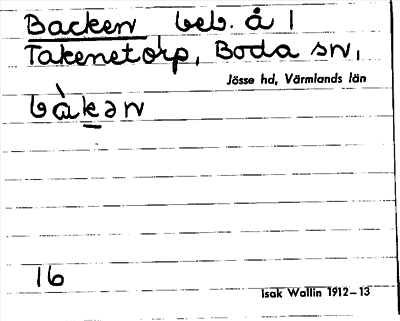 Backen beb. å 1
Takenetorp, Boda sn,
Jösse hd, Värmlands län
bàkən
16
Isak Wallin 1912–13